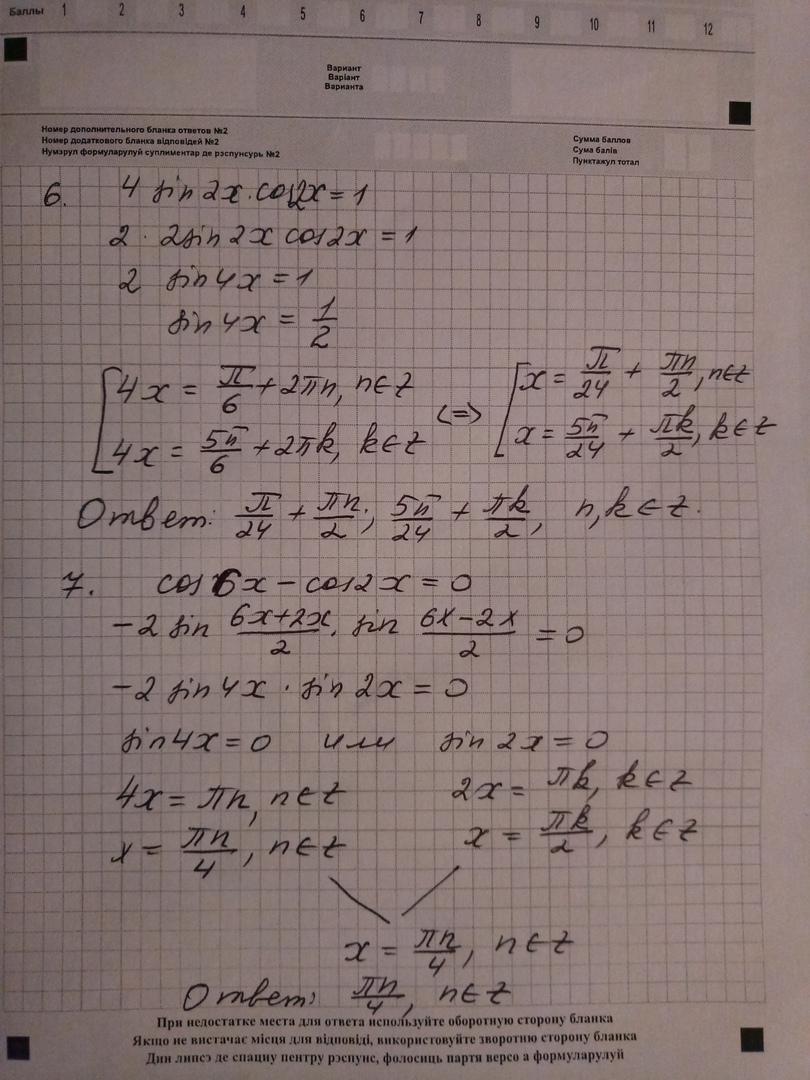 Баллы 1 2 3 4 5 6 7 8 9 10 11 12
Вариант
Варіант
Варианта
Номер дополнительного бланка ответов №2
Номер додаткового бланка відповідей №2
Нумэрул формуларулуй суплиментар де рэспунсурь №2
Сумма баллов
Сума балів
Пунктажул тотал
6. 4 sin 2x · cos 2x = 1
2 · 2 sin 2x cos 2x = 1
2 sin 4x = 1
sin 4x = 1/2
[ 4x = π/6 + 2πn, n ∈ Z
4x = 5π/6 + 2πk, k ∈ Z
<=>
[ x = π/24 + πn/2, n ∈ Z
x = 5π/24 + πk/2, k ∈ Z
Ответ: π/24 + πn/2; 5π/24 + πk/2, n, k ∈ Z.
7. cos 6x − cos 2x = 0
−2 sin (6x+2x)/2 · sin (6x−2x)/2 = 0
−2 sin 4x · sin 2x = 0
sin 4x = 0 или sin 2x = 0
4x = πn, n ∈ Z 2x = πk, k ∈ Z
x = πn/4, n ∈ Z x = πk/2, k ∈ Z
x = πn/4, n ∈ Z
Ответ: πn/4, n ∈ Z
При недостатке места для ответа используйте оборотную сторону бланка
Якщо не вистачає місця для відповіді, використовуйте зворотню сторону бланка
Дин липсэ де спациу пентру рэспунс, фолосиць партя версо а формуларулуй